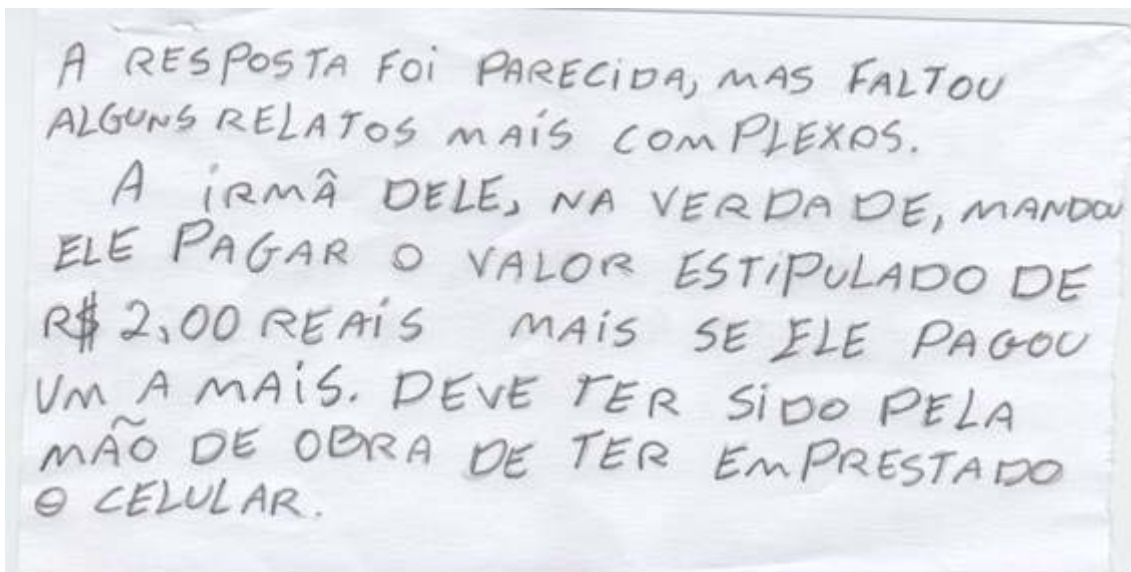 A RESPOSTA FOI PARECIDA, MAS FALTOU
ALGUNS RELATOS MAIS COMPLEXOS.
A IRMÂ DELE, NA VERDADE, MANDOU
ELE PAGAR O VALOR ESTIPULADO DE
R$ 2,00 REAIS MAIS SE ELE PAGOU
UM A MAIS. DEVE TER SIDO PELA
MÃO DE OBRA DE TER EMPRESTADO
O CELULAR.